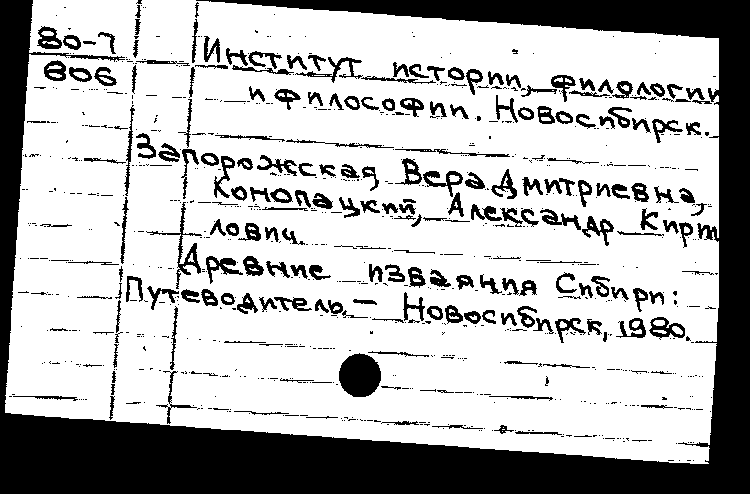 80-7
606
Институт истории, филологии
и философии. Новосибирск.
Запорожская, Вера Дмитриевна,
Конопацкий, Александр Кирт
лович.
Древние изваяния Сибири:
Путеводитель. — Новосибирск, 1980.